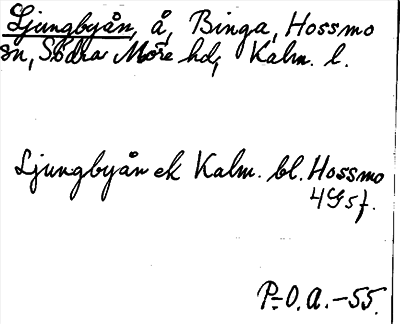 Ljungbyån, å, Binga, Hossmo
sn, Södra Möre hd, Kalm. l.
Ljungbyån ek Kalm. bl. Hossmo
4G5f.
P.-O.A.-55.